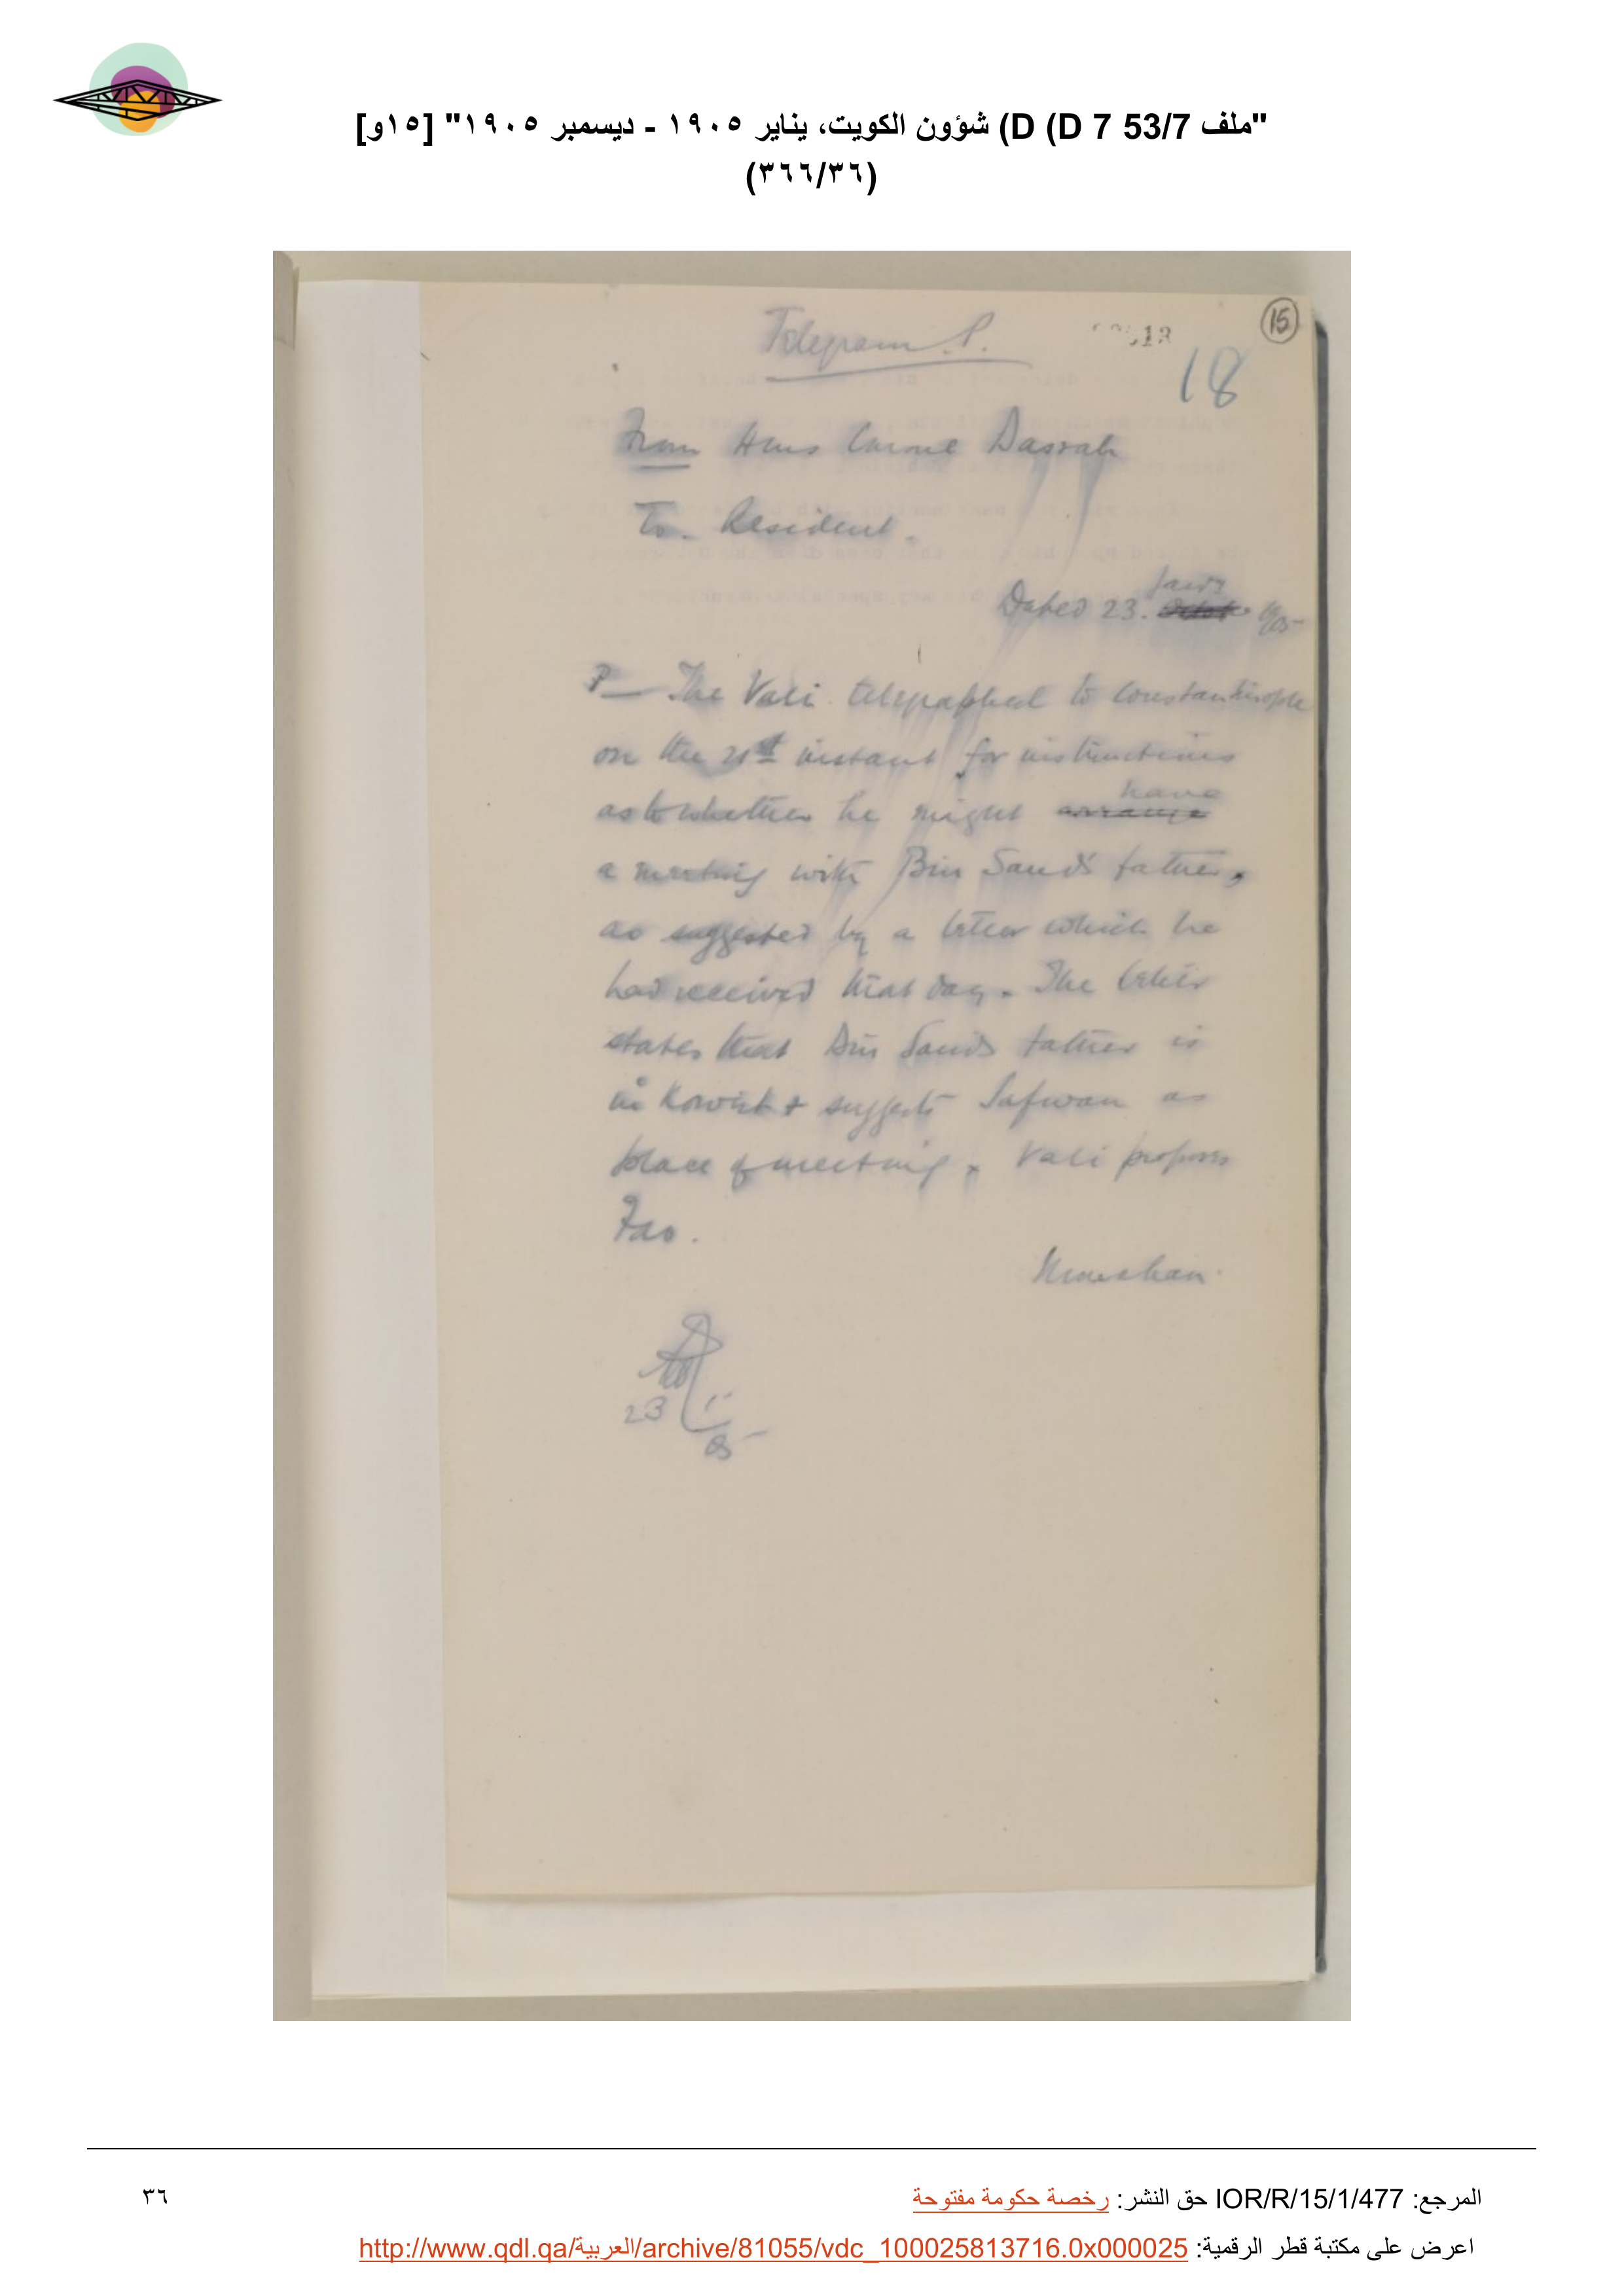 "ملف 53/7 D 7) D) شؤون الكويت، يناير ١٩٠٥ - ديسمبر ١٩٠٥" [١٥و]
(٣٦٦/٣٦)
Telegram. P.
15
18
From Hms Consul Basrah
To. Resident.
Dated 23. Jany 1905
P— The Vali telegraphed to Constantinople
on the 21st instant for instructions
as to whether he might arrange have
a meeting with Bin Saud's father,
as suggested by a letter which he
had received that day. The letter
states that Bin Saud's father is
in Koweit & suggests Safwan as
place of meeting. Vali proposes
Fao.
23
05
المرجع: IOR/R/15/1/477 حق النشر: رخصة حكومة مفتوحة
٣٦
اعرض على مكتبة قطر الرقمية: http://www.qdl.qa/العربية/archive/81055/vdc_100025813716.0x000025